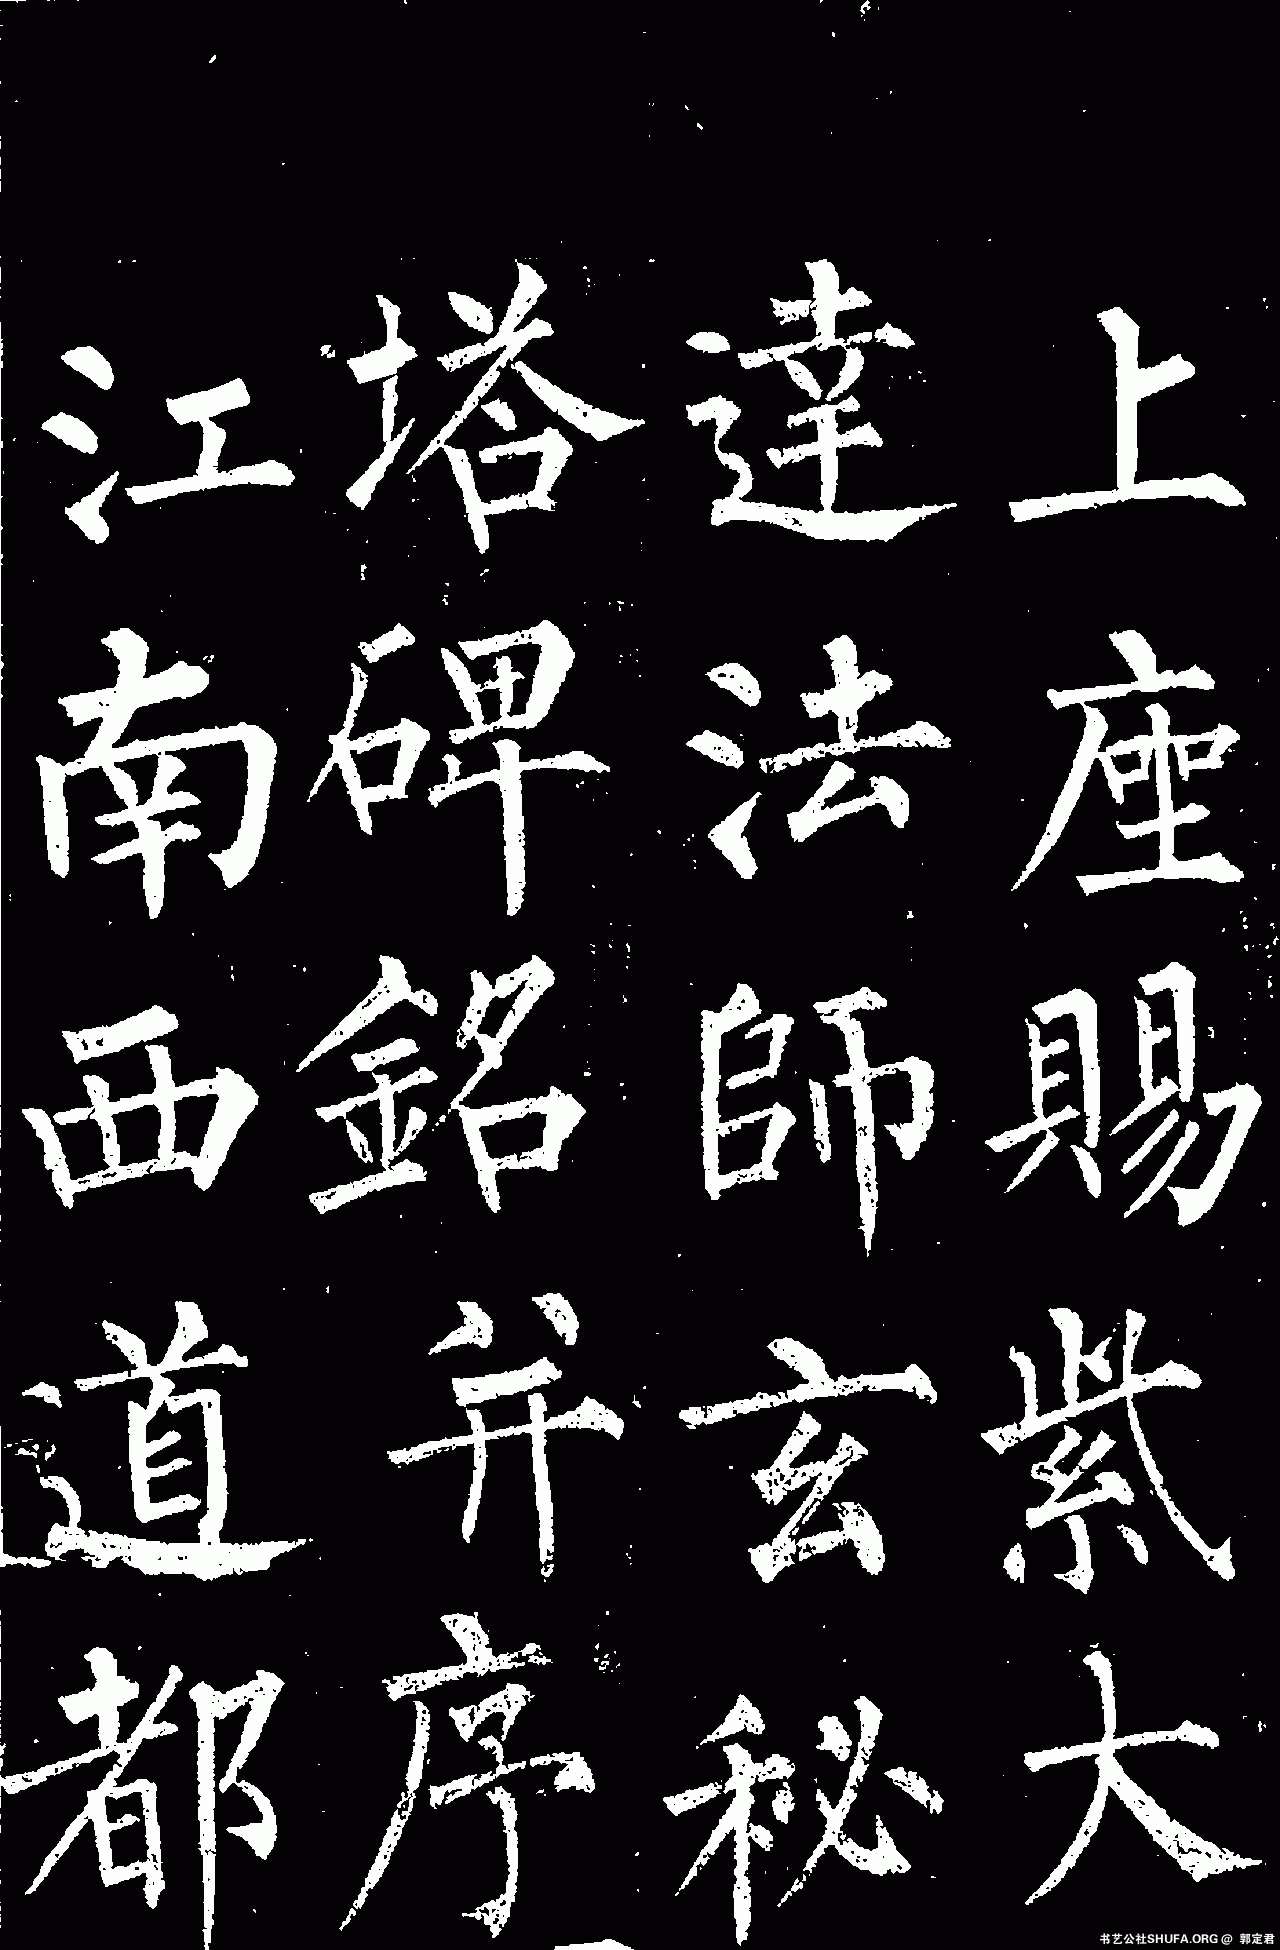 上座賜紫大
達法師玄秘
塔碑銘并序
江南西道都
书艺公社SHUFA.ORG @ 郭定君